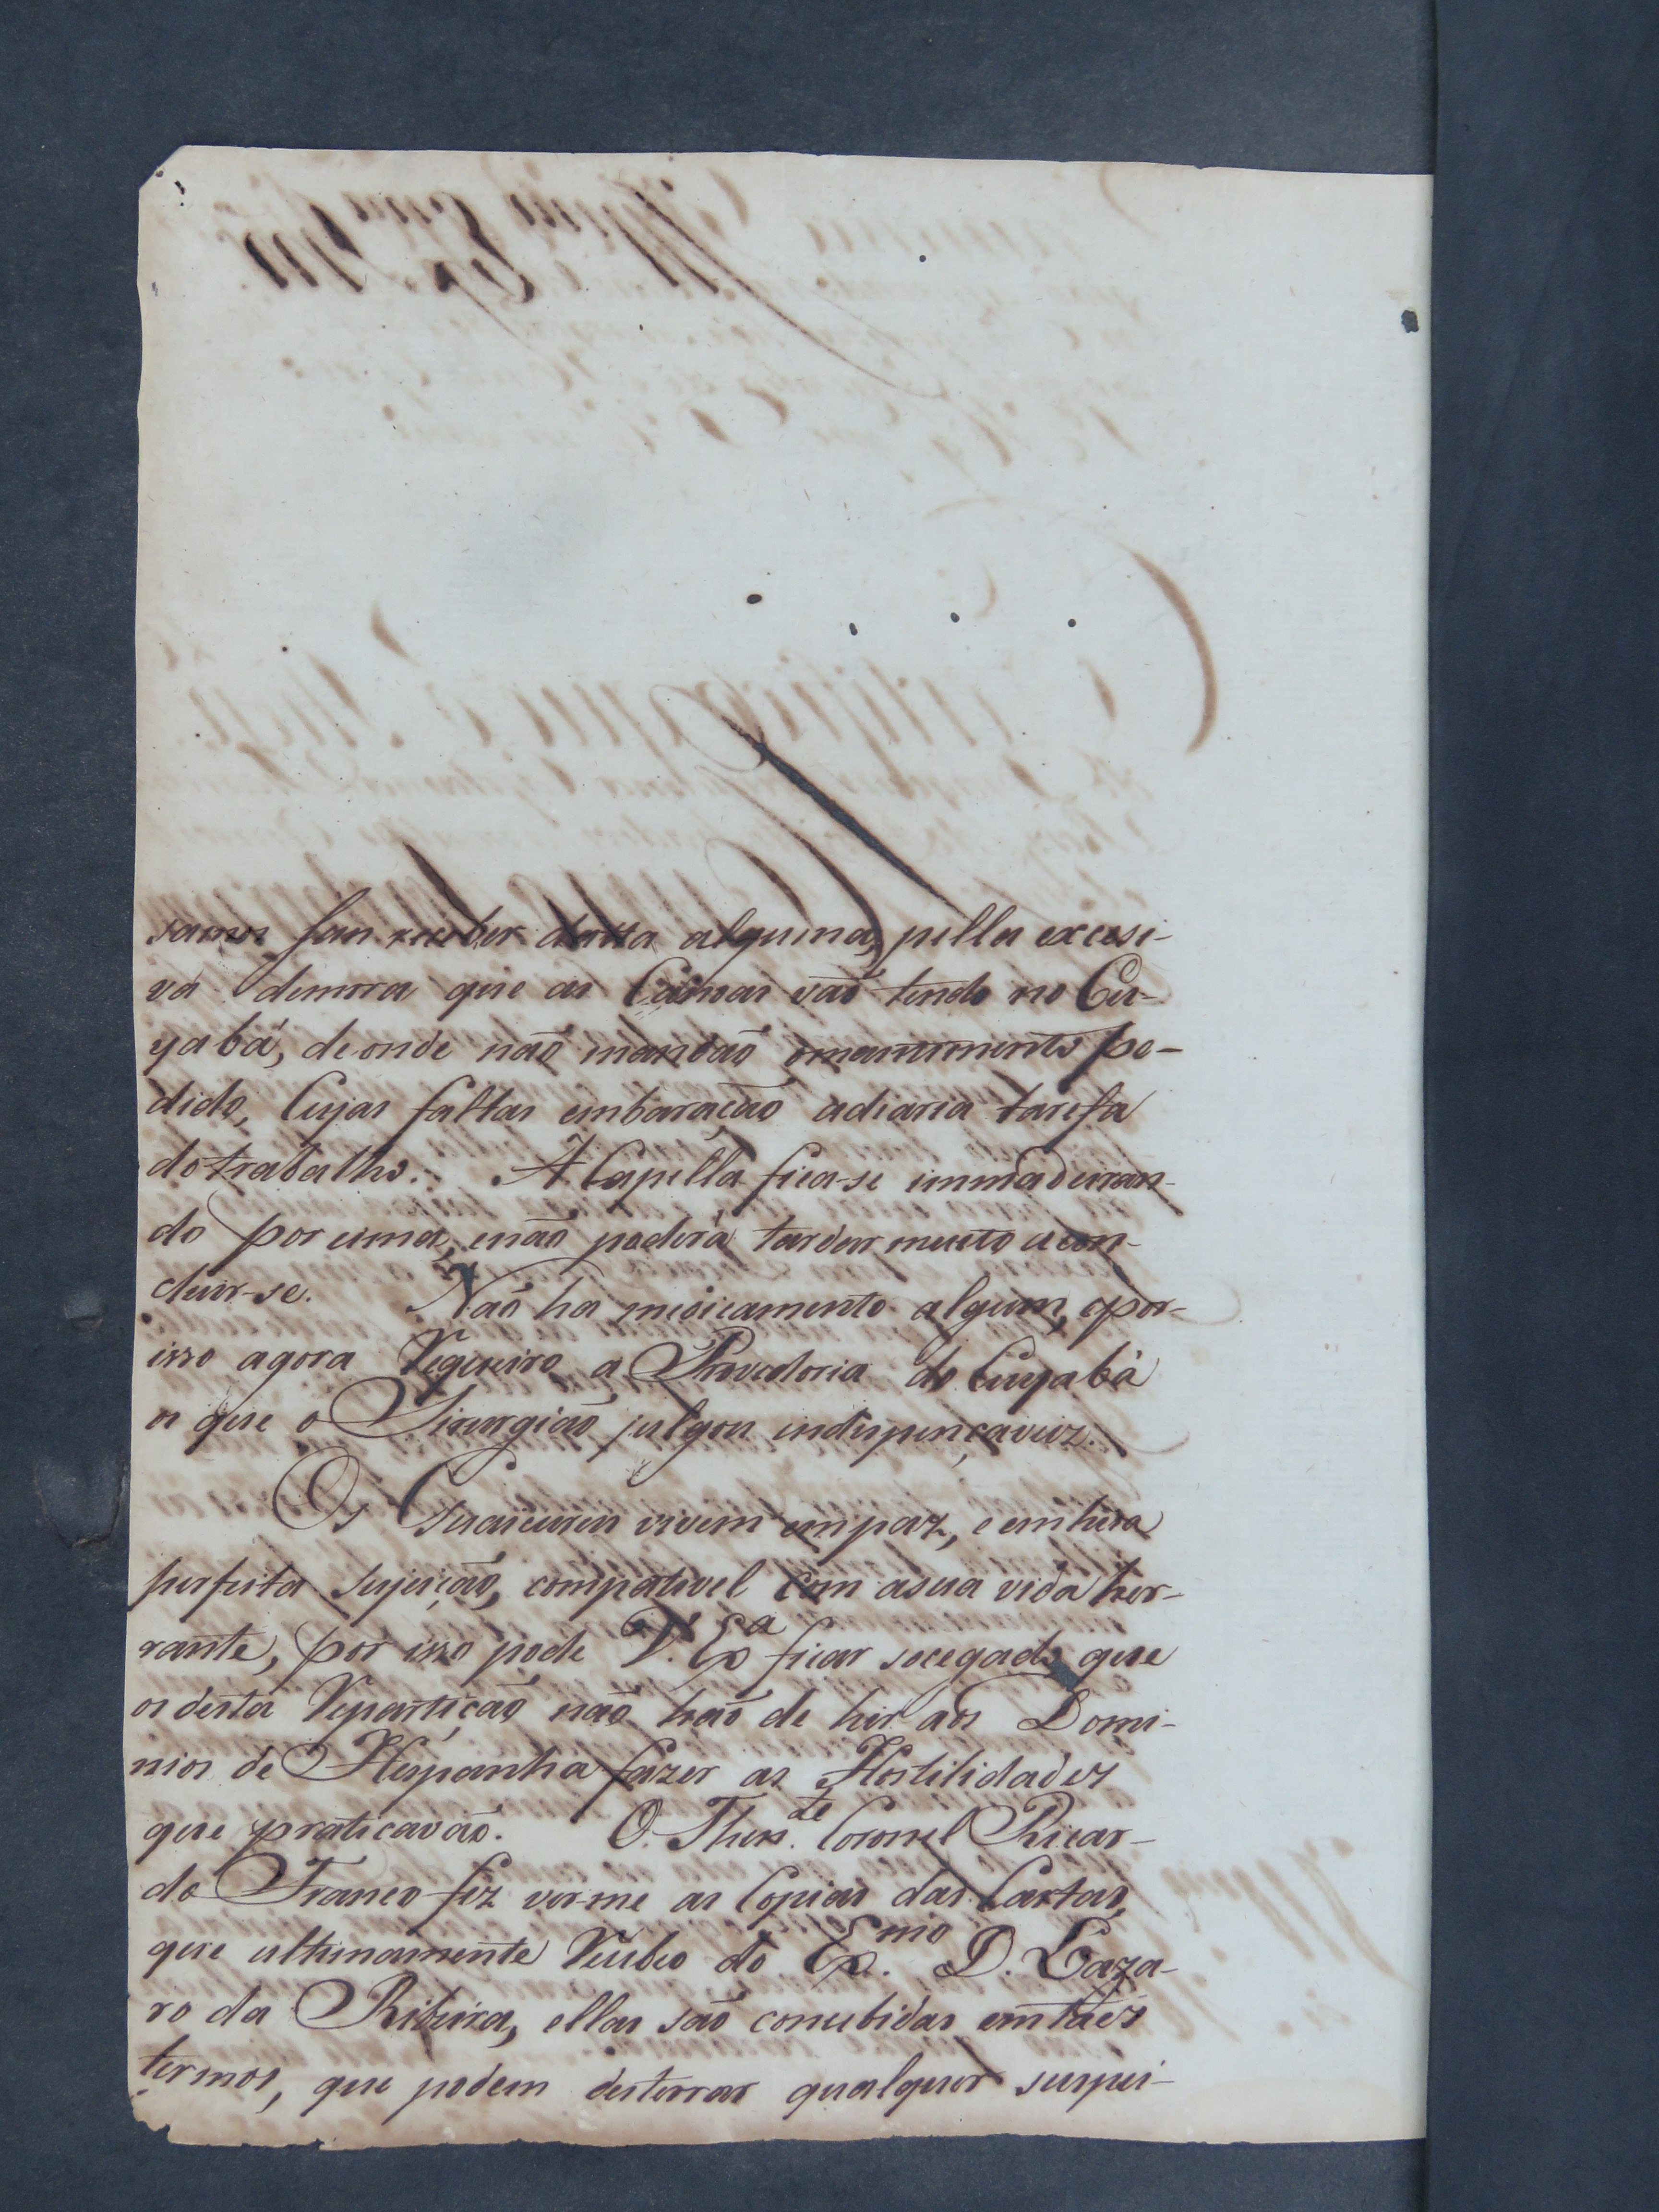 samos sem receber datta alguma, pella excesi-
va demora que as Canoas vaõ tendo no Cu-
yabá, de onde naõ mandaõ omantimento pe-
dido, Cujas faltas embaraçaõ adiaria tarefa
do trabalho. A Capella fica-se immadeiran-
do por sima, enaõ poderá tardar muito acon-
cluir-se. Naõ ha medicamento algum, epor-
isso agora Requeiro a Provedoria do Cuyabá
os que o Sirurgiaõ julgou indispençaveiz.
Os Guaicurus vivem em paz, e em huma
perfeita sujeiçaõ, compativel com asua vida her-
rante, por isso pode V. Exª ficar socegado que
os desta Repartiçaõ naõ haõ de hir aos Domi-
nios de Hespanha fazer as Hostilidades
que praticavaõ. O Then.te Coronel Ricar-
do Franco fez ver-me as Copias das Cartas,
que ultimamente Recebeo do Ex.mo D. Laza-
ro da Ribeira, ellas saõ concebidas em taes
termos, que podem desterrar qualquer suspei-